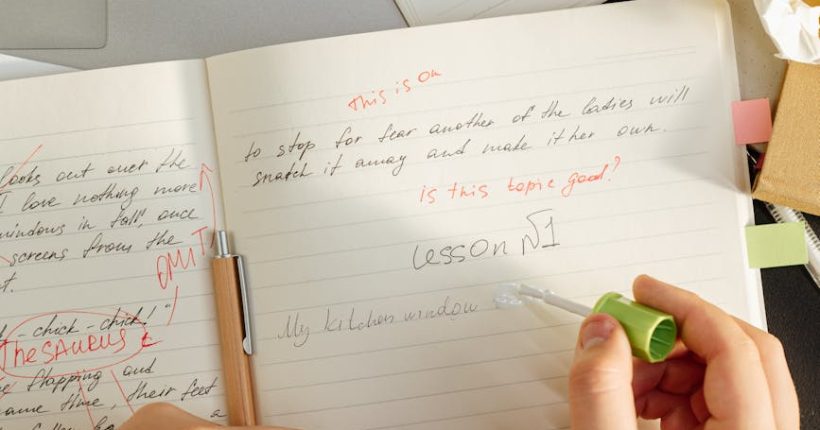 looks out over the
I love nothing more
windows in fall, once
screens from the
t.
OMIT
- chick - chick!"
TheSAURUS
flapping and
ame time, their feet
a
This is
to stop for fear another of the ladies will
snatch it away and make it her own.
is this topic good?
Lesson №1
My kitchen window